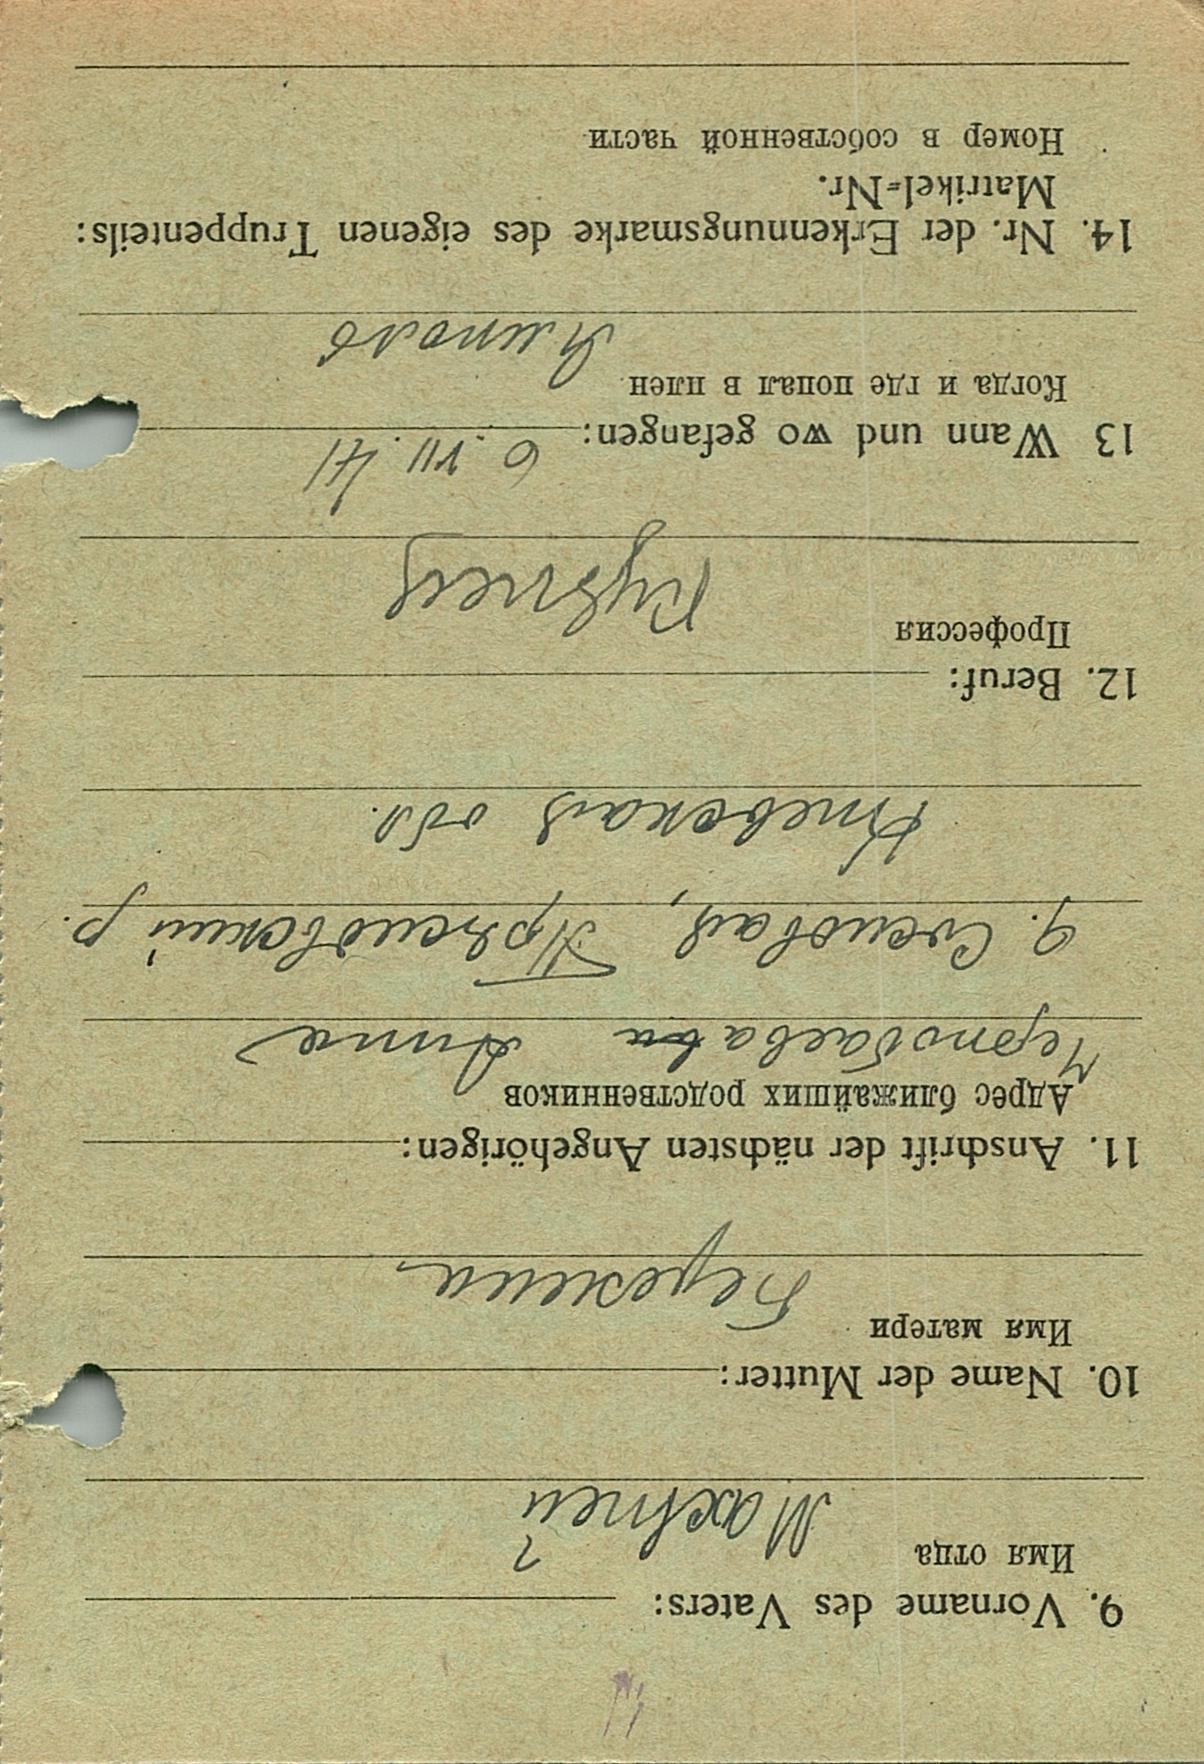 9. Vorname des Vaters:
Имя отца
Матвей
10. Name der Mutter:
Имя матери
11. Anschrift der nächsten Angehörigen:
Адрес ближайших родственников
Анна
д.
Киевская обл.
12. Beruf:
Профессия
Кузнец
13 Wann und wo gefangen:
6. VII. 41
Когда и где попал в плен
14. Nr. der Erkennungsmarke des eigenen Truppenteils:
Matrikel=Nr.
Номер в собственной части